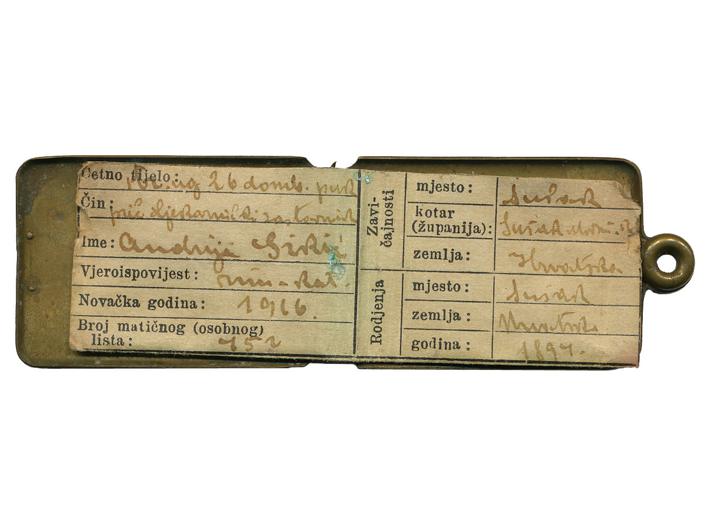 Četno tijelo: 26 domb. puk
Čin: zastavnik
Ime: Andrija
Vjeroispovijest: rim-kat.
Novačka godina: 1916.
Broj matičnog (osobnog)
lista: 752
Zavi-
čajnosti
mjesto: Sušak
kotar
(županija): Sušak
zemlja: Hrvatska
Rodjenja
mjesto: Sušak
zemlja: Hrvatska
godina: 1897.